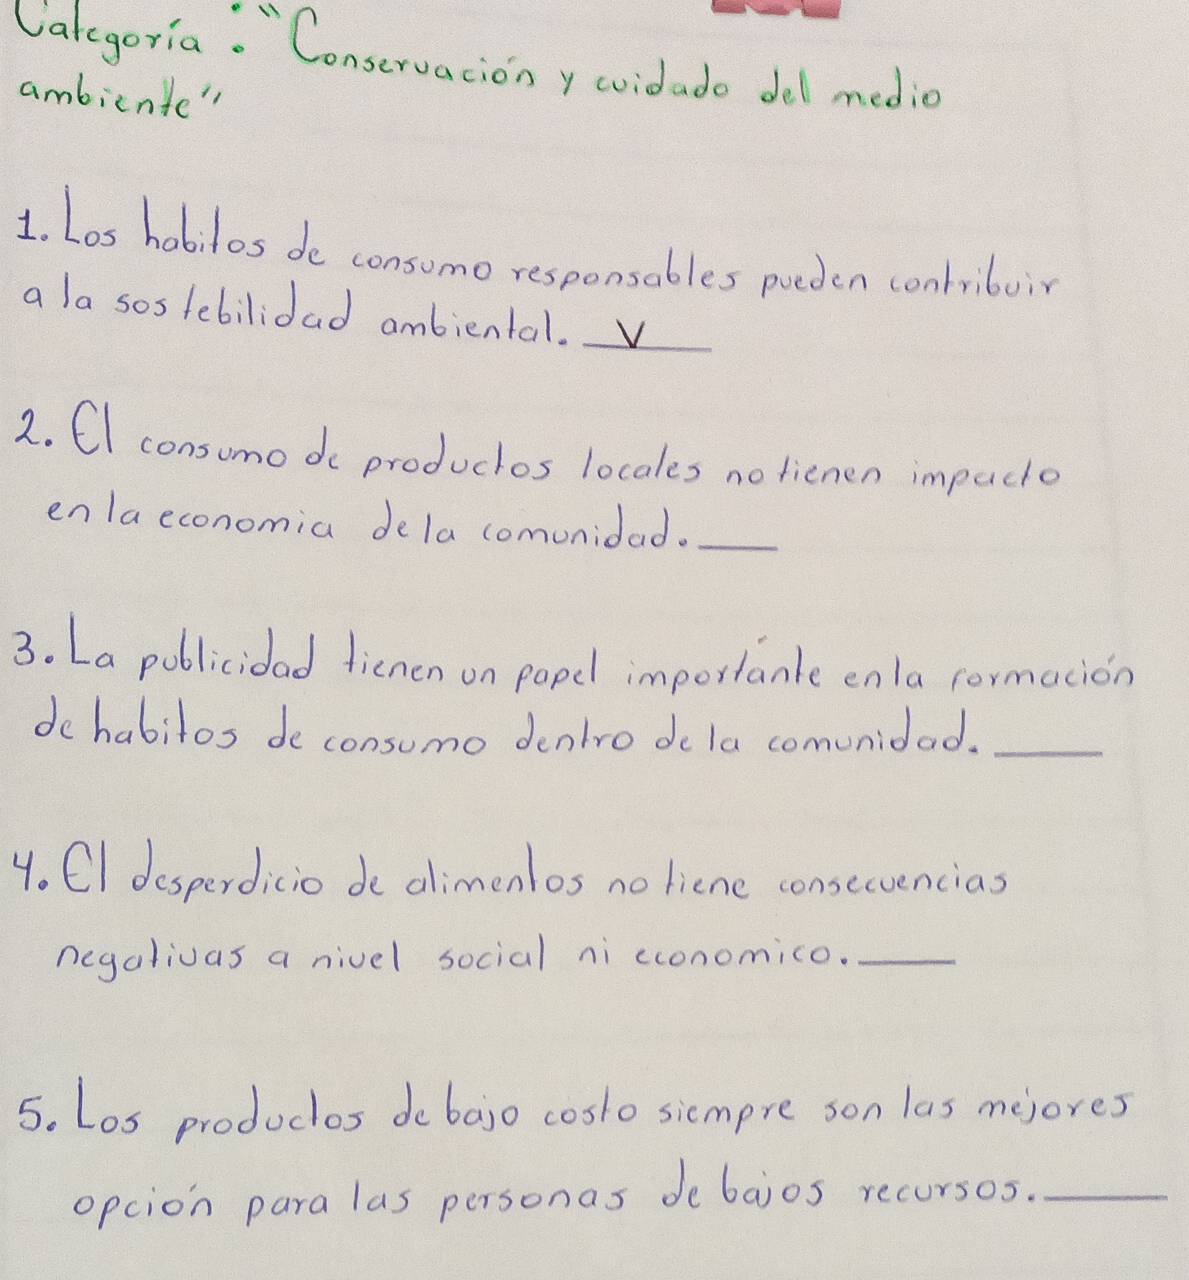 Categoría: "Conservación y cuidado del medio
ambiente"
1. Los habitos de consumo responsables pueden contribuir
a la sostebilidad ambiental. V
2. El consumo de productos locales no tienen impacto
en la economia de la comunidad. ___
3. La publicidad tienen un papel importánte en la formación
de habitos de consumo dentro de la comunidad. ___
4. El desperdicio de alimentos no tiene consecuencias
negativas a nivel social ni economico. ___
5. Los productos de bajo costo siempre son las mejores
opción para las personas de bajos recursos. ___